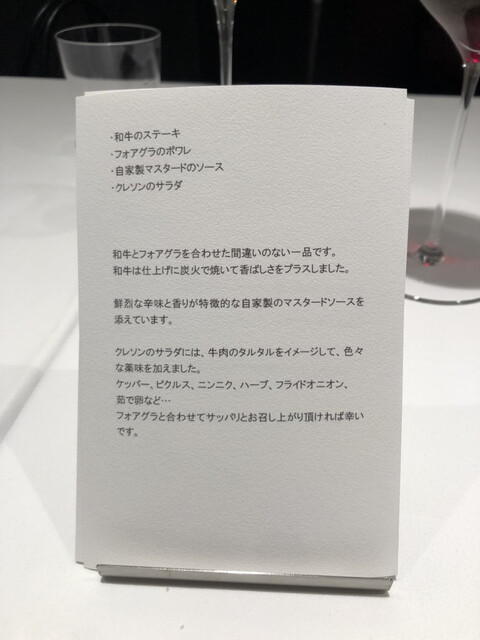 ・和牛のステーキ
・フォアグラのポワレ
・自家製マスタードのソース
・クレソンのサラダ
和牛とフォアグラを合わせた間違いのない一品です。
和牛は仕上げに炭火で焼いて香ばしさをプラスしました。
鮮烈な辛味と香りが特徴的な自家製のマスタードソースを
添えています。
クレソンのサラダには、牛肉のタルタルをイメージして、色々
な薬味を加えました。
ケッパー、ピクルス、ニンニク、ハーブ、フライドオニオン、
茹で卵など…
フォアグラと合わせてサッパリとお召し上がり頂ければ幸い
です。